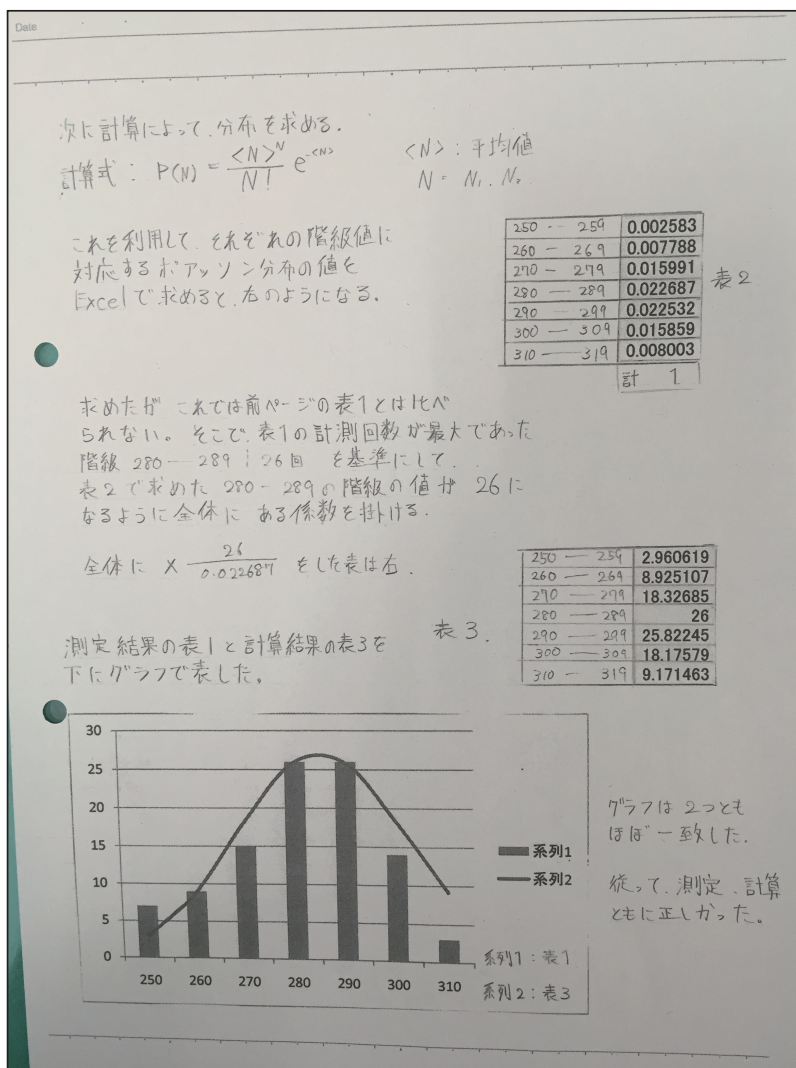 Date
次に計算によって、分布を求める.
計算式: P(N) = <N>^N / N! e^-<N>
<N>: 平均値
N = N₁, N₂
これを利用して、それぞれの階級値に
対応するポアッソン分布の値を
Excelで求めると、右のようになる.
250 -- 259 0.002583
260 — 269 0.007788
270 — 279 0.015991
280 — 289 0.022687
290 — 299 0.022532
300 — 309 0.015859
310 — 319 0.008003
計 1
表2
求めたが これでは前ページの表1とは比べ
られない。そこで、表1の計測回数が最大であった
階級 280 — 289 ; 26回 を基準にして、
表2で求めた 280 - 289 の階級の値が 26に
なるように全体に ある係数を掛ける.
全体に × 26 / 0.022687 をした表は右.
250 — 259 2.960619
260 — 269 8.925107
270 — 279 18.32685
280 — 289 26
290 — 299 25.82245
300 — 309 18.17579
310 — 319 9.171463
表3.
測定結果の表1と計算結果の表3を
下にグラフで表した。
30
25
20
15
10
5
0
250 260 270 280 290 300 310
系列1
系列2
系列1: 表1
系列2: 表3
グラフは 2つとも
ほぼ一致した.
従って、測定、計算
ともに正しかった。